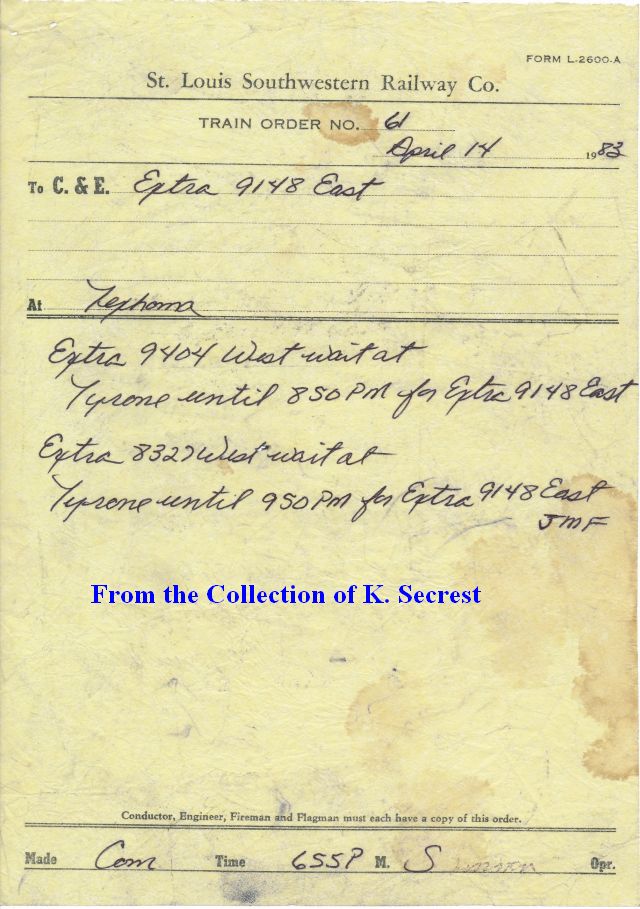 FORM L-2600-A
St. Louis Southwestern Railway Co.
TRAIN ORDER NO. 61
April 14 1983
To C. & E. Extra 9148 East
At Texhoma
Extra 9404 West wait at
Tyrone until 850 PM for Extra 9148 East
Extra 8327 West wait at
Tyrone until 950 PM for Extra 9148 East
JMF
From the Collection of K. Secrest
Conductor, Engineer, Fireman and Flagman must each have a copy of this order.
Made Com Time 655P M. Opr.